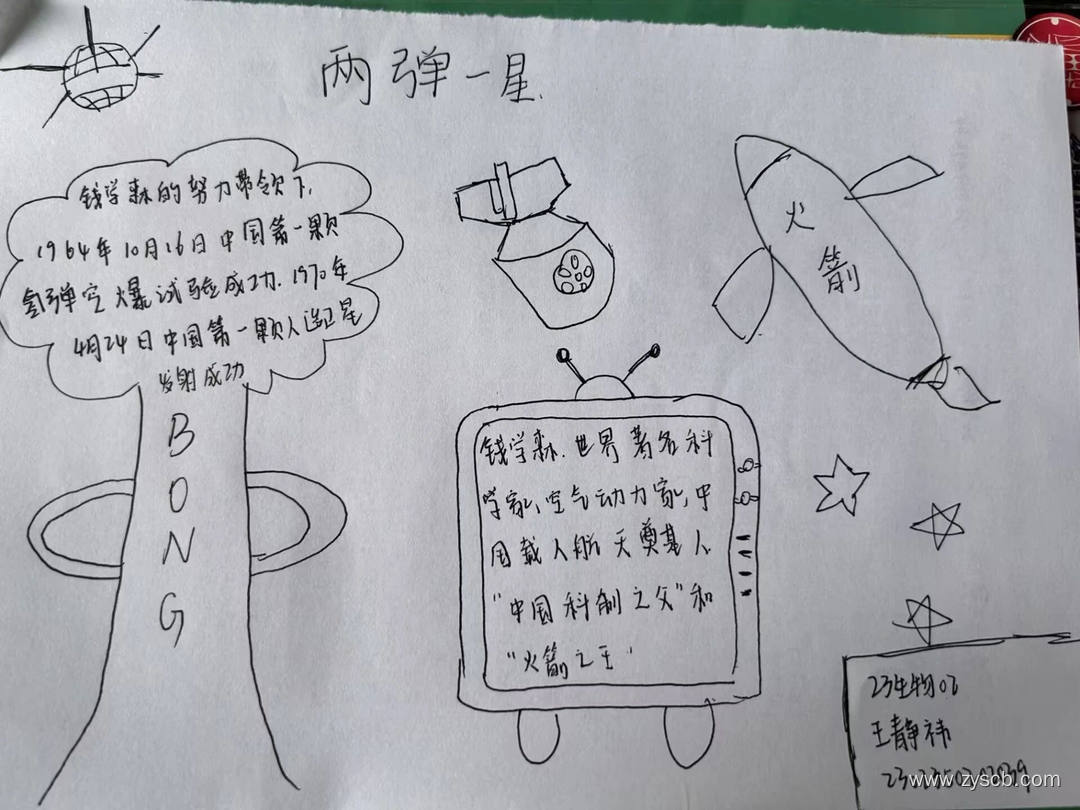 两弹一星
钱学森的努力带领下,
1964年10月16日中国第一颗
氢弹空爆试验成功.1970年
4月24日中国第一颗人造卫星
发射成功
BONG
火箭
钱学森.世界著名科
学家,空气动力家,中
国载人航天奠基人.
"中国科制之父"和
"火箭之王"
23生物02
王静祎
www.zyscb.com